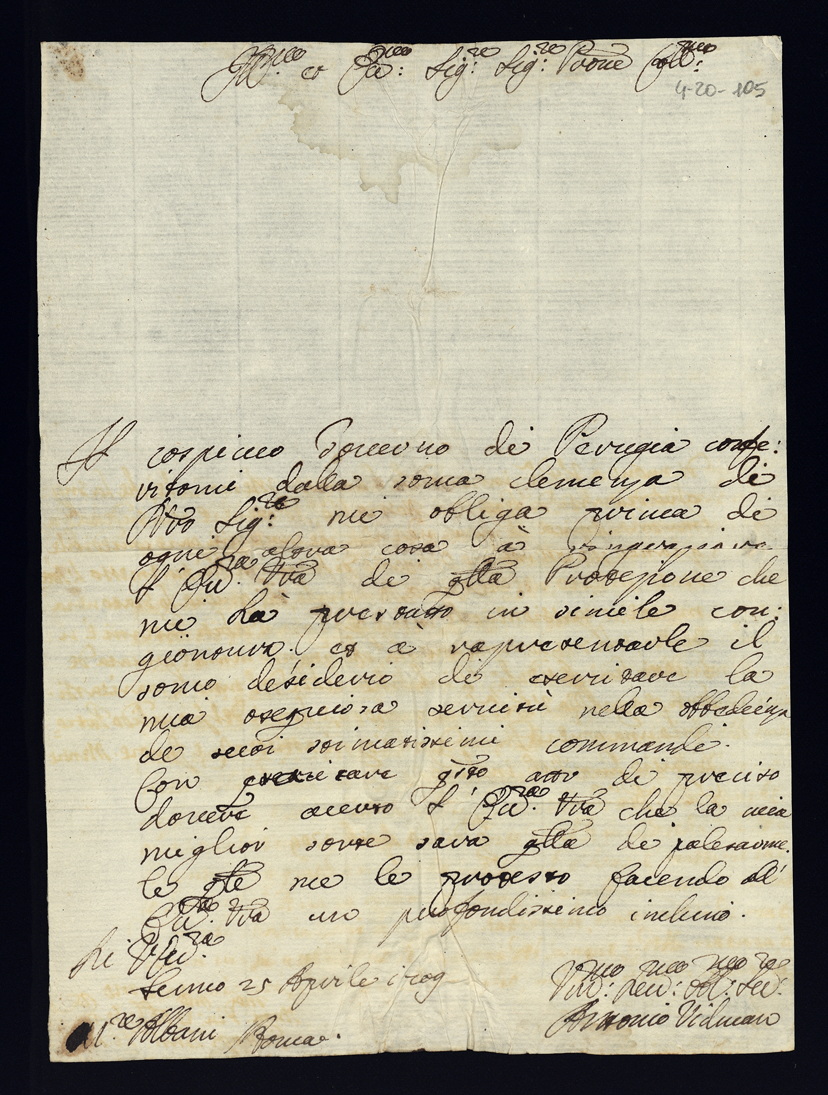 Ill.mo et Ecc.mo Sig.re Sig.re Prone Coll.mo
4-20-105
Il cospicuo Governo di Perugia confe:
ritomi dalla somma clemenza di
Nro Sig.re mi obliga prima di
ogni altra cosa à ringraziare
l'Ecc.za Vra di qlla Protezione che
mi hà prestato in simile con:
giontura. et à rapresentarle il
sommo desiderio di esercitare la
mia osequiosa servitù nella obbedienza
de suoi stimatissimi commandi.
Con esercitare qsto atto di preciso
dovere acerto l'Ecc.za Vra che la mia
miglior sorte sarà qlla di palesarme
le qle me le protesto facendo all'
Ecc.za Vra un profondissimo inchino.
Di V Ecc.za
Fermo 25 Aprile 1709
Um.mo Dev.mo Obl.mo Se.re
Antonio Vidman
Albani Roma.